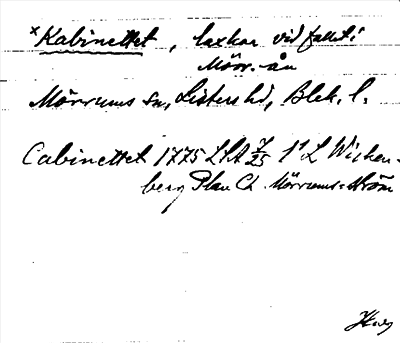 ×Kabinettet, laxkar vid fallet i
Mörr.-ån
Mörrums sn, Listers hd, Blek. l.
Cabinettet 1775 LSA 1' L Wicken-
berg Plan Ch Mörrums-ström